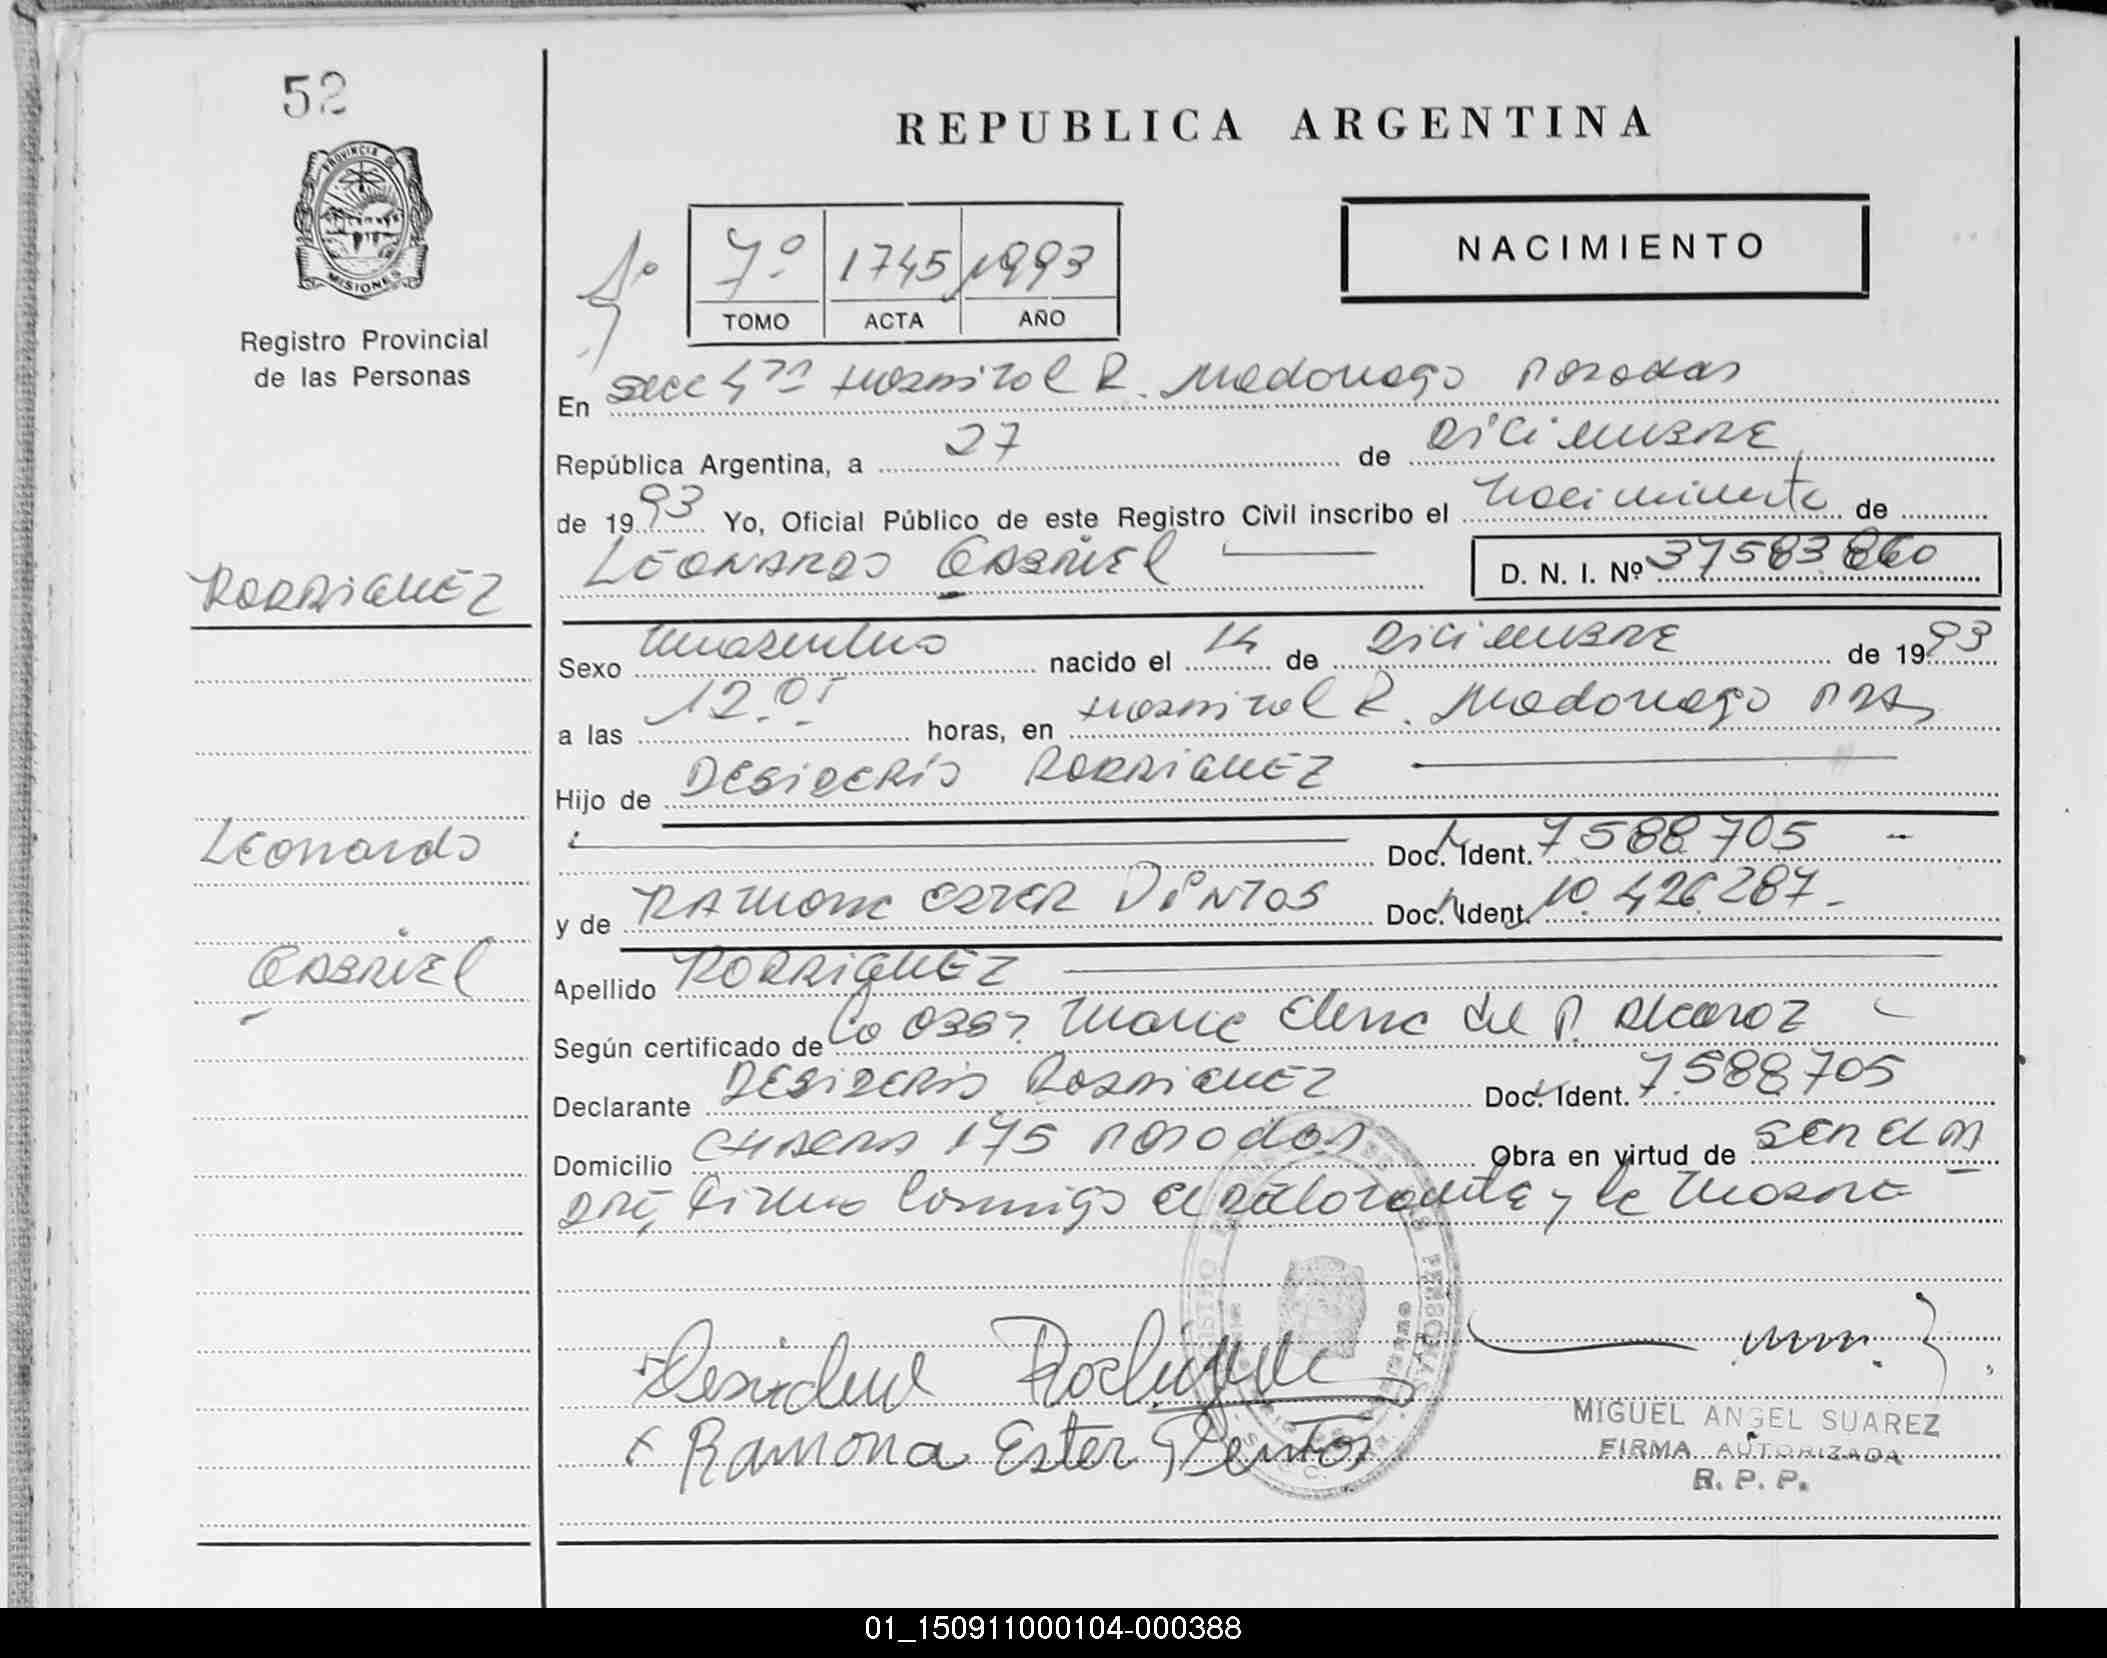 52
REPUBLICA ARGENTINA
PROVINCIA DE
MISIONES
Registro Provincial
de las Personas
7º 1745 1993
TOMO ACTA AÑO
NACIMIENTO
En Secc 4ta Hospital R. Madariaga Posadas
República Argentina, a 27 de Diciembre
de 1993 Yo, Oficial Público de este Registro Civil inscribo el Nacimiento de
Leonardo Gabriel
D. N. I. Nº 37583860
RODRIGUEZ
Sexo Masculino nacido el 14 de Diciembre de 1993
a las 12.01 horas, en Hospital R. Madariaga Pdas
Hijo de Desiderio Rodriguez
Doc. Ident. 7588705
Leonardo
y de Ramona Ester Dintos Doc. Ident. 10.426.287.-
Gabriel
Apellido RODRIGUEZ
Según certificado de La Obst. Maria Elena del P. Alcaraz
Declarante Desiderio Rodriguez Doc. Ident. 7.588705
Domicilio 175 Posadas Obra en virtud de ser el pa
dre, Firma Conmigo el declarante y la madre
Rodriguez
x Ramona Ester
MIGUEL ANGEL SUAREZ
FIRMA AUTORIZADA
R. P. P.
01_150911000104-000388